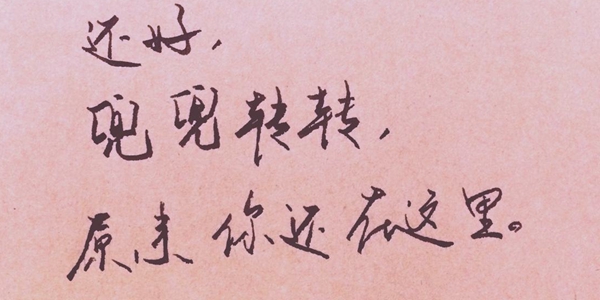 还好，
兜兜转转，
原来你还在这里。